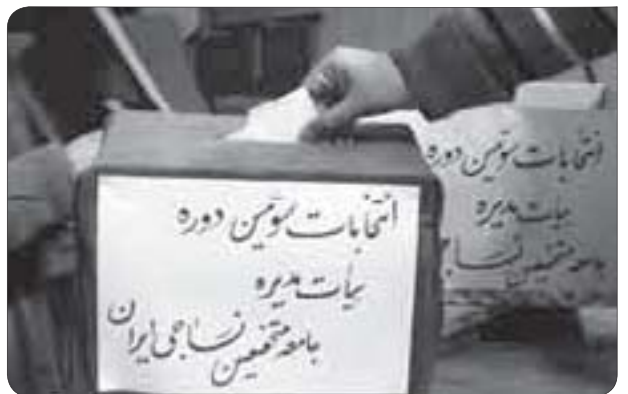 انتخابات سومین دوره
هیأت مدیره
جامعه متخصصین نساجی ایران
انتخابات سومین دوره
هیأت مدیره
جامعه متخصصین نساجی